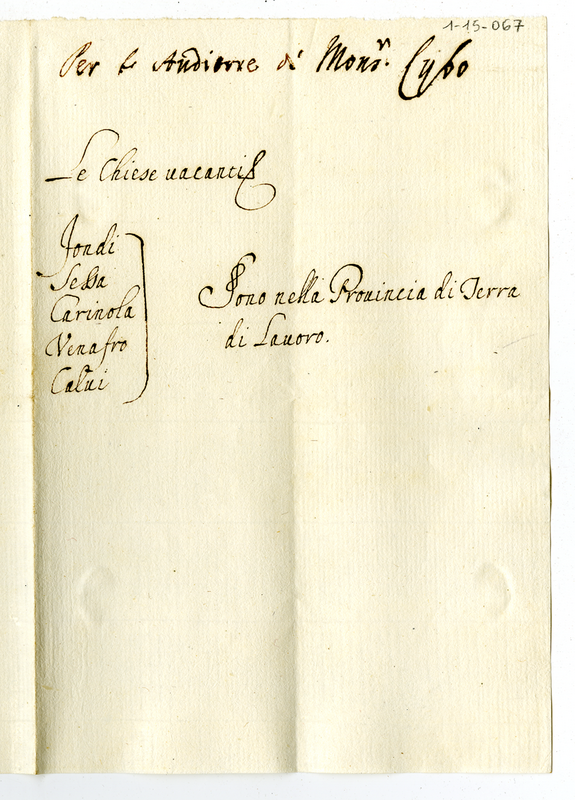 1-15-067
Per l' Auditore di Mons.r Cybo
Le Chiese uacanti
Fondi
Sessa
Carinola
Venafro
Calui
Sono nella Prouincia di Terra
di Lauoro.